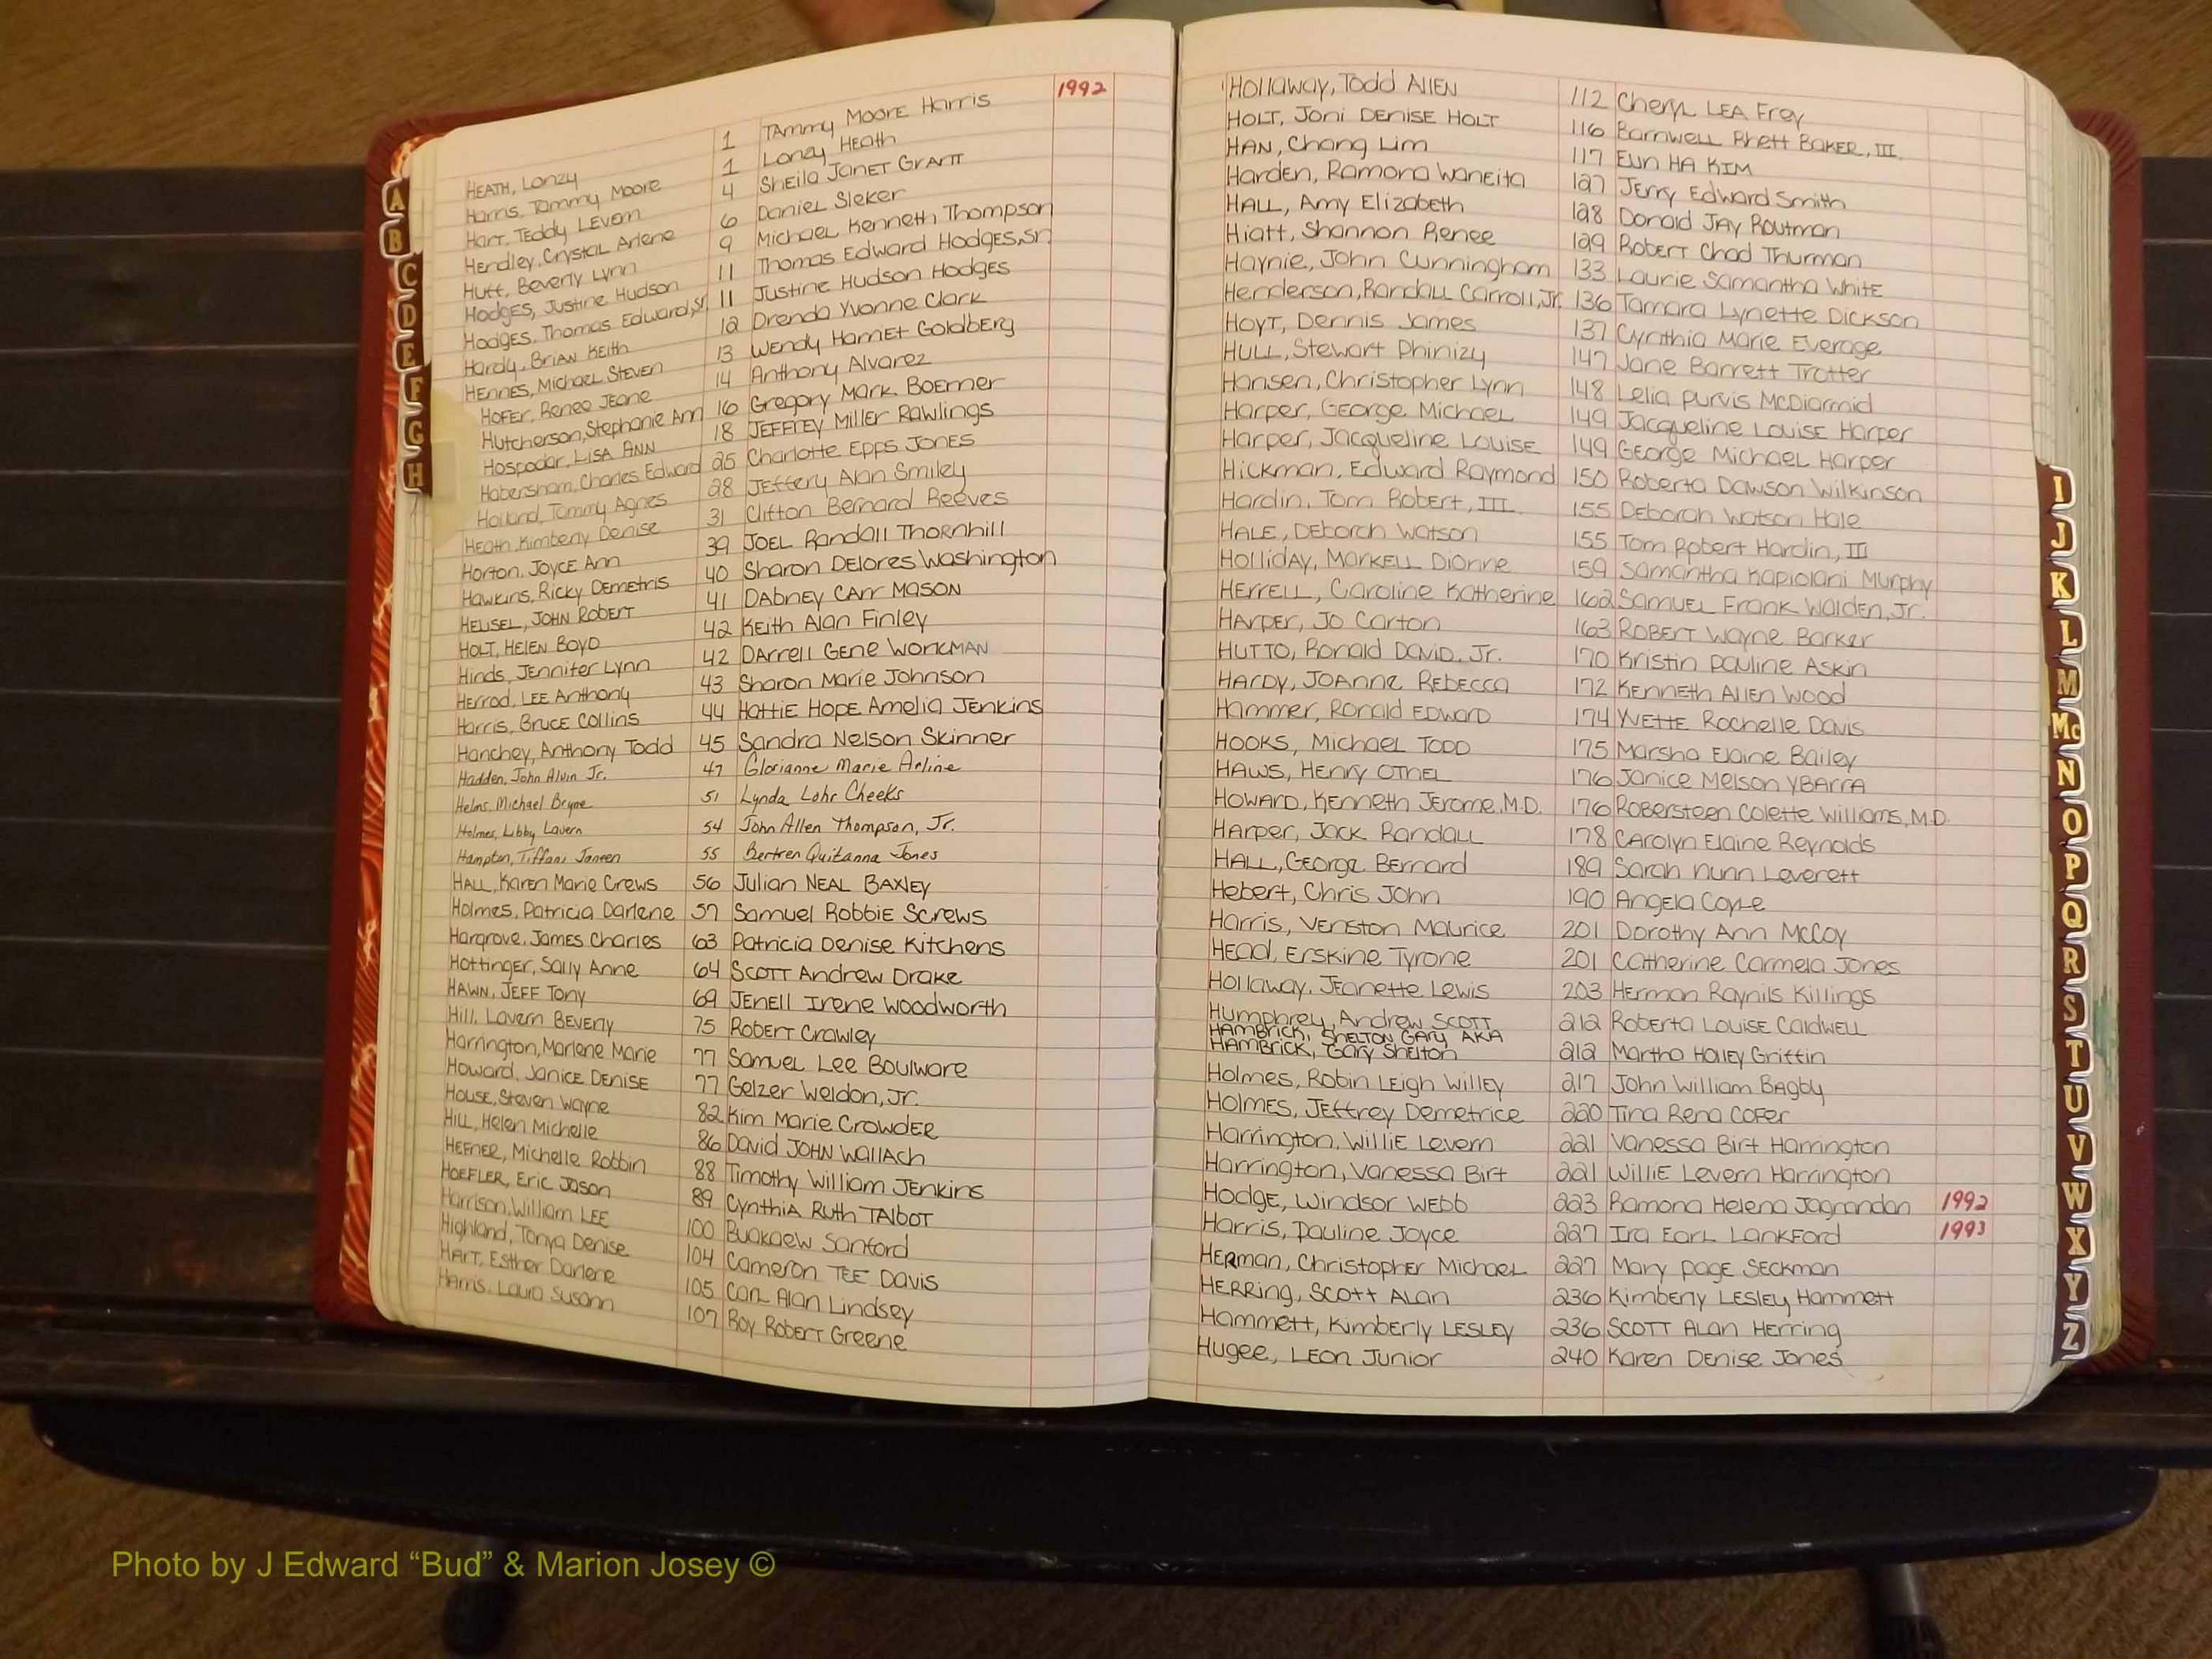 1992
HEATH, Lonzy 1 Tammy Moore Harris
Harris, Tammy Moore 1 Lonzy Heath
Hart, Teddy Levern 4 Sheila Janet Grant
Hendley, Crystal Arlene 6 Daniel Sleker
Huff, Beverly Lynn 9 Michael Kenneth Thompson
Hodges, Justine Hudson 11 Thomas Edward Hodges, Sr.
Hodges, Thomas Edward, Sr. 11 Justine Hudson Hodges
Hardy, Brian Keith 12 Drenda Yvonne Clark
HENNES, Michael STEVEN 13 Wendy Harriet Goldberg
HOFER, Renee JEANE 14 Anthony Alvarez
Hutcherson, Stephanie Ann 16 Gregory Mark Boerner
Hospodar, LISA ANN 18 JEFFREY Miller Rawlings
Habersham, Charles Edward 25 Charlotte Epps JONES
Holland, Tammy Agnes 28 JEFFery Alan Smiley
Heath, Kimberly Denise 31 Clifton Bernard Reeves
Horton, Joyce Ann 39 JOEL Randall Thornhill
Hawkins, Ricky Demetris 40 Sharon Delores Washington
HEUSEL, JOHN ROBERT 41 DABNEY CARR MASON
HOLT, HELEN BOYD 42 Keith Alan Finley
Hinds, Jennifer Lynn 42 Darrell Gene WORKMAN
Herrod, LEE Anthony 43 Sharon Marie Johnson
Harris, Bruce Collins 44 Hattie HOPE Amelia JENKINS
Hanchey, Anthony Todd 45 Sandra Nelson Skinner
Hadden, John Alvin Jr. 47 Glorianne Marie Arline
Helms, Michael Bryne 51 Lynda Lohr Cheeks
Holmes, Libby Lavern 54 John Allen Thompson, Jr.
Hampton, Tiffani Janeen 55 Bertren Quitanna Jones
HALL, Karen Marie Crews 56 Julian NEAL BAXLEY
Holmes, Patricia Darlene 57 Samuel Robbie Screws
Hargrove, James Charles 63 Patricia Denise Kitchens
Hottinger, Sally Anne 64 SCOTT Andrew Drake
HAWN, JEFF Tony 69 JENELL Irene Woodworth
Hill, Lavern BEVERLY 75 ROBERT Crawley
Harrington, Marlene Marie 77 Samuel Lee Boulware
Howard, Janice DENISE 77 Gelzer Weldon, Jr.
HOUSE, Steven Wayne 82 Kim Marie CROWDER
HILL, Helen Michelle 86 David JOHN WALLACH
HEFNER, Michelle Robbin 88 Timothy William JENKINS
HOEFLER, Eric Jason 89 Cynthia RUTH TALBOT
Harrison, William LEE 100 Buakaew Sanford
Highland, Tonya Denise 104 Cameron TEE Davis
HART, Esther Darlene 105 Carl Alan Lindsey
Harris, Laura Susann 107 Roy ROBERT Greene
Hollaway, Todd ALLEN 112 Cheryl LEA Frey
HOLT, Joni DENISE HOLT 116 Barnwell Rhett BAKER, III
HAN, Chang Lim 117 EUN HA KIM
Harden, Ramona Waneita 127 Jerry Edward Smith
HALL, Amy Elizabeth 128 Donald JAY Routman
Hiatt, Shannon Renee 129 ROBERT Chad Thurman
Haynie, John Cunningham 133 Laurie Samantha White
Henderson, Randall Carroll, Jr. 136 Tamara Lynette Dickson
HOYT, Dennis James 137 Cynthia Marie Everage
HULL, Stewart Phinizy 147 Jane Barrett Trotter
Hansen, Christopher Lynn 148 Lelia Purvis McDiarmid
Harper, George Michael 149 Jacqueline Louise Harper
Harper, Jacqueline Louise 149 George Michael Harper
Hickman, Edward Raymond 150 Roberta Dawson Wilkinson
Hardin, Tom Robert, III 155 Deborah Watson Hale
HALE, Deborah Watson 155 Tom Robert Hardin, III
Holliday, Markell Dionne 159 Samantha Kapiolani Murphy
HERRELL, Caroline Katherine 162 SAMUEL Frank Walden, Jr.
HARPER, Jo Carton 163 ROBERT Wayne Barker
HUTTO, Ronald David, Jr. 170 Kristin Pauline Askin
HARDY, JOANNE REBECCA 172 KENNETH Allen Wood
Hammer, Ronald EDWARD 174 YVETTE Rochelle Davis
HOOKS, Michael TODD 175 Marsha Elaine Bailey
HAWS, HENRY OTHEL 176 Janice Melson YBARRA
HOWARD, KENNETH JEROME, M.D. 176 Robersteen Colette Williams, M.D.
Harper, Jack Randall 178 Carolyn Elaine Reynolds
HALL, George Bernard 189 Sarah Nunn Leverett
Hebert, Chris John 190 Angela Coyle
Harris, Venston Maurice 201 Dorothy Ann McCoy
HEAD, Erskine Tyrone 201 Catherine Carmela Jones
Hollaway, Jeanette Lewis 203 Herman Raynils Killings
Humphrey, Andrew SCOTT 212 Roberta LOUISE CALDWELL
HAMBRICK, SHELTON GARY AKA
HAMBRICK, GARY Shelton 212 Martha HOLLEY Griffin
Holmes, Robin LEIGH WILLEY 217 John William Bagby
HOLMES, JEFFREY Demetrice 220 Tina Rena COFER
Harrington, Willie Levern 221 Vanessa Birt Harrington
Harrington, Vanessa Birt 221 WilliE Levern Harrington
Hodge, Windsor WEBB 223 Ramona Helena Jagnandan 1992
Harris, Pauline Joyce 227 Ira EARL LANKFORD 1993
HERMAN, Christopher Michael 227 Mary PAGE SECKMAN
HERRING, SCOTT ALAN 236 Kimberly LESLEY Hammett
Hammett, Kimberly LESLEY 236 SCOTT ALAN Herring
Hugee, LEON JUNIOR 240 Karen DENISE JONES
A
B
C
D
E
F
G
H
I
J
K
L
M
Mc
N
O
P
Q
R
S
T
U
V
W
X
Y
Z
Photo by J Edward “Bud” & Marion Josey ©